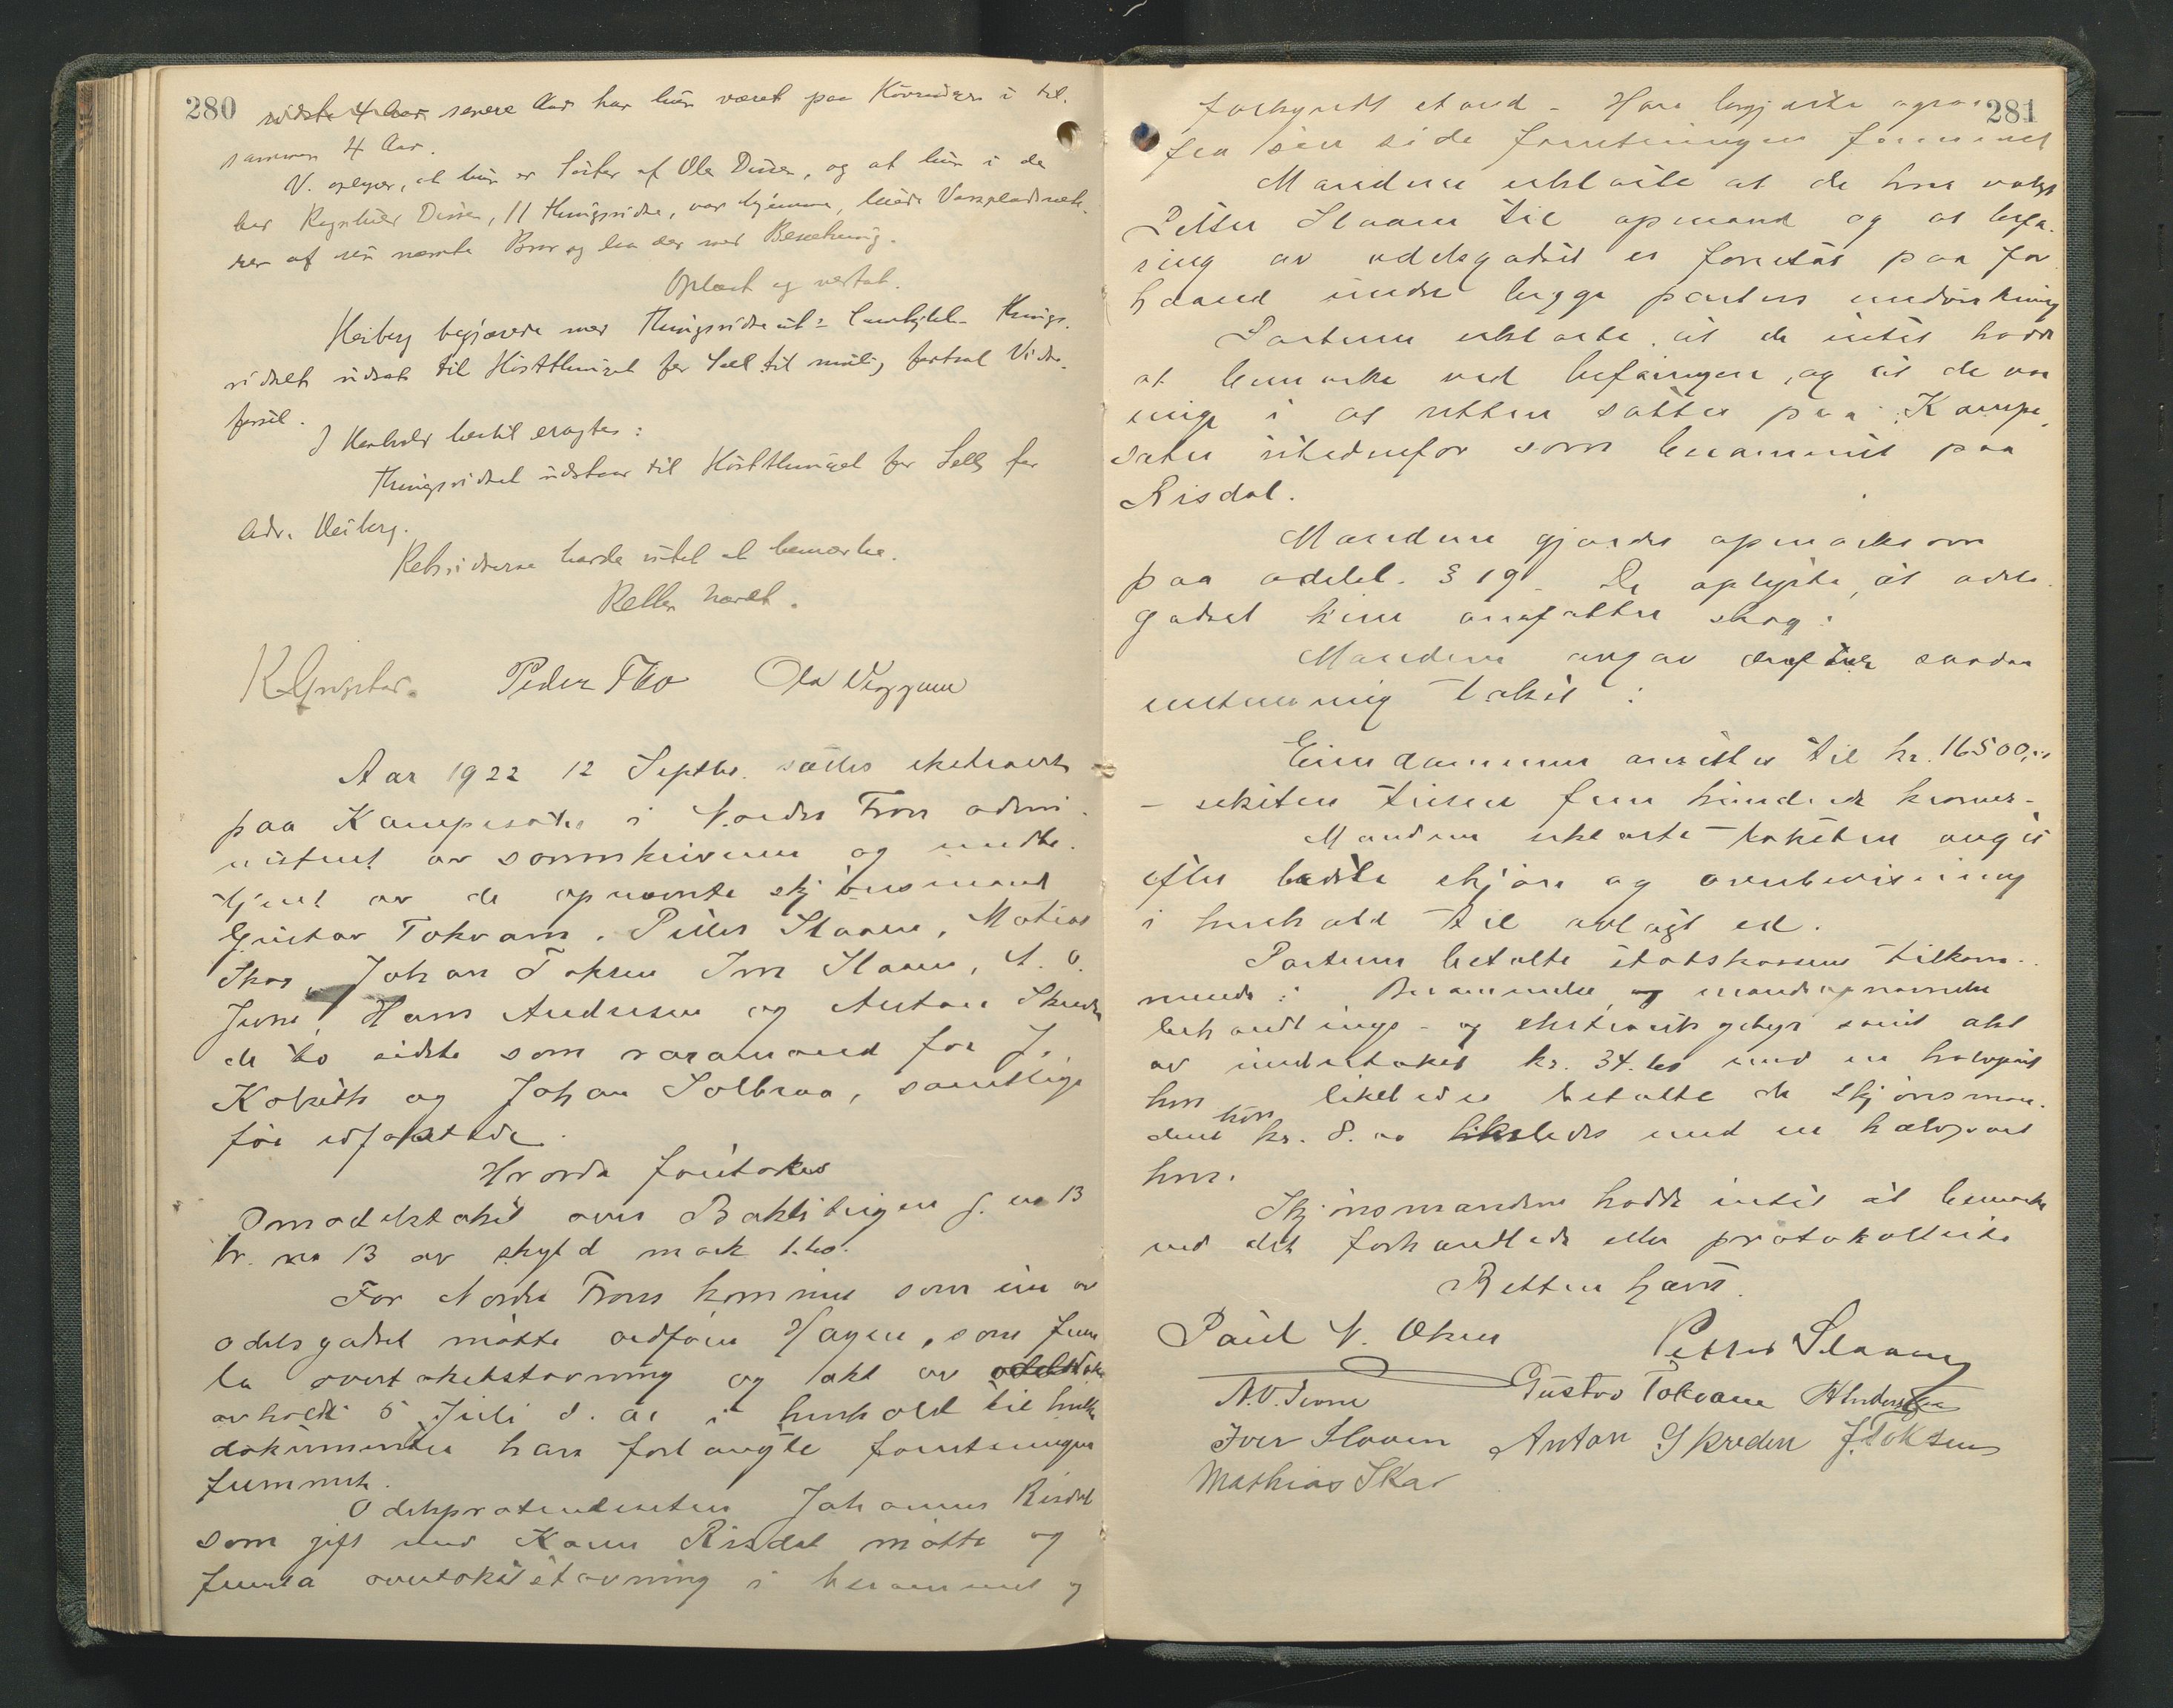 280
sidste 4 Aar senere Aar har hun været paa Kövringen i til.
sammen 4 Aar.
V. oplyser, at hun er Söster af Ole, og at hun i de
11 Thingvidne, var hjemme,
af sin nævnte Bror og har der med Besætning.
Oplæst og vedtat.
Heiberg begjærede med Thingsvidne Things
vidnet udsat til Höstthinget for Sell til mulig fortsat Vidne
försel.
I Henhold hertil eragtes:
Thingsvidnet udstaar til Höstthinget for Sell for
Adv. Heiberg.
Retsvidnerne havde intet at bemærke.
Retten hævet.
Peder Tho Ola Veggum
Aar 1922 12 Septbr. sattes ekstraret
paa Kampesæter i Nordre Fron admi-
nistrert av sorenskriveren og medbe-
tjent av de opnævnte skjönsmænd
Gustav Tokvam, Petter Slaaen, Matias
Skar, Johan Toksen Iver Slaaen, N. O.
Hans Andresen og Anton Skreden
de to sidste som varamænd for J.
og Johan Solbraa, samtlige
för edfæstede.
Hvorda foretokes
Omodelstakst over Bakliteigen g. no 13
br. no 13 av skyld mark
For Nordre Frons kommune som eier av
odelsgodset mötte ordförer Hagen, som frem
la overtakststevning og akt av
avholdt 5 Juli d. aa. i henhold til hvilke
dokumenter han forlangte forretningen
fremmet.
Odelspretendenten Johannes Risdal
som gift med Kari Risdal mötte og
fremla overtakststevning i berammet og
281
forkynt stand - Han begjærte ogsaa
fra sin side forretningen fremmet
Mændene erklærte at de har valgt
Petter Slaaen til opmand og at befa-
ring av odelsgodset er foretat paa for
haand under begge parters medvirkning
Parterne erklærte at de intet hadde
at bemærke ved befaringen, og at de var
enige i at retten sættes paa Kampe-
sæter istedenfor som berammet paa
Risdal.
Mændene gjordes opmerksom
paa odelsl. § 19 - De oplyste, at odels-
godset kun omfatter skog.
Mændene avgav derefter saadan
enstemmig takst:
Eiendommen ansættes til kr. 16500,00
- seksten tusen fem hundrede kroner -
Mændene erklærte taksten avgit
efter bedste skjön og overbevisning
i henhold til avlagt ed.
Parterne betalte statskassens tilkom-
mende: Berammelse og mandsopnævnelse
behandlings- og ekstraretsgebyr samt akt
av undertakst kr. 34.60 med en halvpart
hver likeledes betalte de skjönsmæn-
dene hver kr. 8.00 likeledes med en halvpart
hver.
Skjönsmændene hadde intet at bemerke
ved det forhandlede eller protokollerte
Retten hævet.
Paul N. Petter Slaaen
N.O. Gustav Tokvam H Andersen
Iver Slaaen Anton Skreden J. Toksen
Mathias Skar